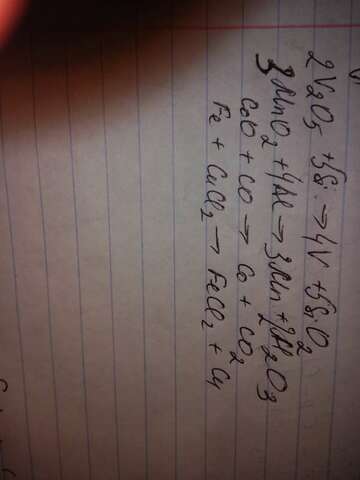 2V₂O₅ + 5Si → 4V + 5SiO₂
3MnO₂ + 4Al → 3Mn + 2Al₂O₃
CoO + CO → Co + CO₂
Fe + CuCl₂ → FeCl₂ + Cu